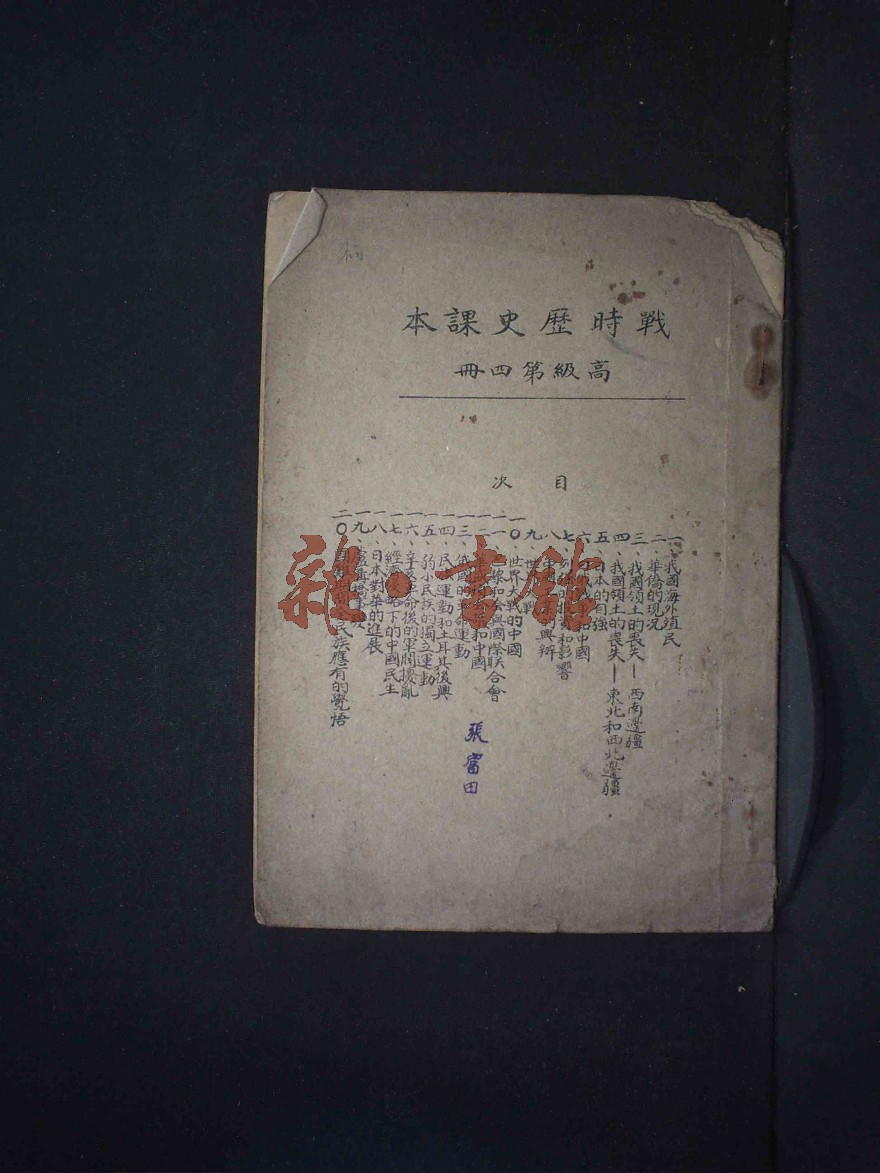 戰時歷史課本
高級第四冊
目次
一、我國海外殖民
二、華僑的現況
三、我國領土的喪失—西南邊疆
四、我國領土的喪失—東北和西北邊疆
五、日本的自強
六
七 和影響
八 興辦
九、世界
一〇、世界大戰的中國
一一、巴黎和會與國際联合會
一二 和中國
一三、俄國的革命運動
一四、民 運動和土耳其復興
一五、弱小民族的獨立運動
一六、辛亥革命後的軍閥擾亂
一七、經濟侵略下的中國民生
一八、日本對華的進展
一九、蘆溝橋事
二〇、 民族應有的覺悟
張富田
雜·書館